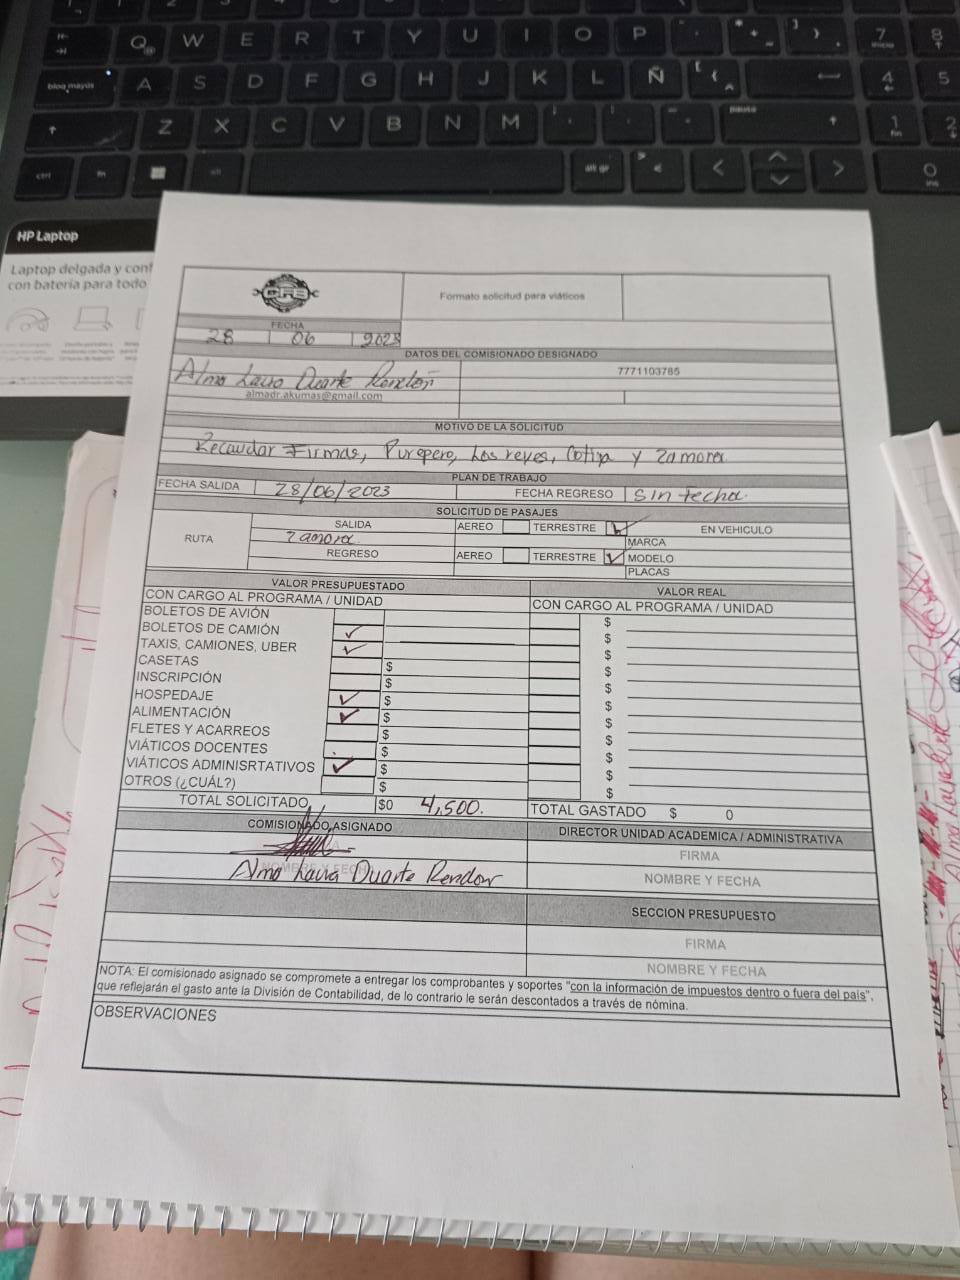 Q W E R T Y U I O P
7
inicio
8
bloq mayús A S D F G H J K L Ñ
4
5
Z X C V B N M
pausa
1
fin
2
ctrl fn alt
alt gr
0
ins
HP Laptop
Laptop delgada y conf
con batería para todo
Formato solicitud para viáticos
FECHA
28 06 2023
DATOS DEL COMISIONADO DESIGNADO
Alma Laura Duarte Rendón
7771103765
almadr.akumas@gmail.com
MOTIVO DE LA SOLICITUD
Recaudar Firmas, Purepero, Los reyes, Cotija y Zamora
PLAN DE TRABAJO
FECHA SALIDA 28/06/2023 FECHA REGRESO Sin fecha.
SOLICITUD DE PASAJES
RUTA
SALIDA AEREO TERRESTRE EN VEHICULO
Zamora
MARCA
REGRESO AEREO TERRESTRE MODELO
PLACAS
VALOR PRESUPUESTADO VALOR REAL
CON CARGO AL PROGRAMA / UNIDAD CON CARGO AL PROGRAMA / UNIDAD
BOLETOS DE AVIÓN $
BOLETOS DE CAMIÓN $
TAXIS, CAMIONES, UBER $
CASETAS $ $
INSCRIPCIÓN $ $
HOSPEDAJE $ $
ALIMENTACIÓN $ $
FLETES Y ACARREOS $ $
VIÁTICOS DOCENTES $ $
VIÁTICOS ADMINISRTATIVOS $ $
OTROS (¿CUÁL?) $ $
TOTAL SOLICITADO $0 4,500. TOTAL GASTADO $ 0
COMISIONADO ASIGNADO DIRECTOR UNIDAD ACADEMICA / ADMINISTRATIVA
FIRMA
Alma Laura Duarte Rendon NOMBRE Y FECHA
SECCION PRESUPUESTO
FIRMA
NOMBRE Y FECHA
NOTA: El comisionado asignado se compromete a entregar los comprobantes y soportes "con la información de impuestos dentro o fuera del pais",
que reflejarán el gasto ante la División de Contabilidad, de lo contrario le serán descontados a través de nómina.
OBSERVACIONES